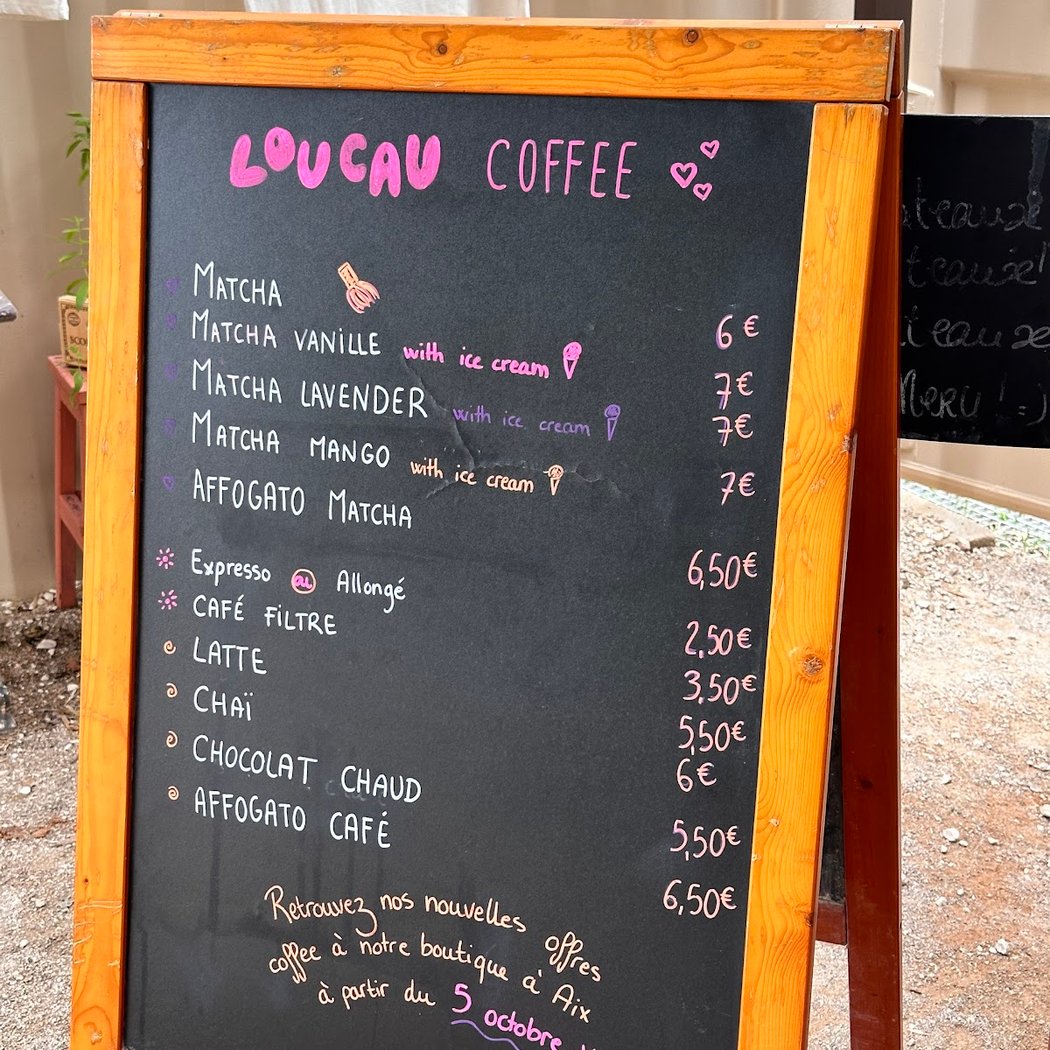 LOUCAU COFFEE
MATCHA 6€
MATCHA VANILLE with ice cream 7€
MATCHA LAVENDER with ice cream 7€
MATCHA MANGO with ice cream 7€
AFFOGATO MATCHA 6,50€
Expresso ou Allongé 2,50€
CAFÉ FILTRE 3,50€
LATTE 5,50€
CHAÏ 6€
CHOCOLAT CHAUD 5,50€
AFFOGATO CAFÉ 6,50€
Retrouvez nos nouvelles offres
coffee à notre boutique à Aix
à partir du 5 octobre